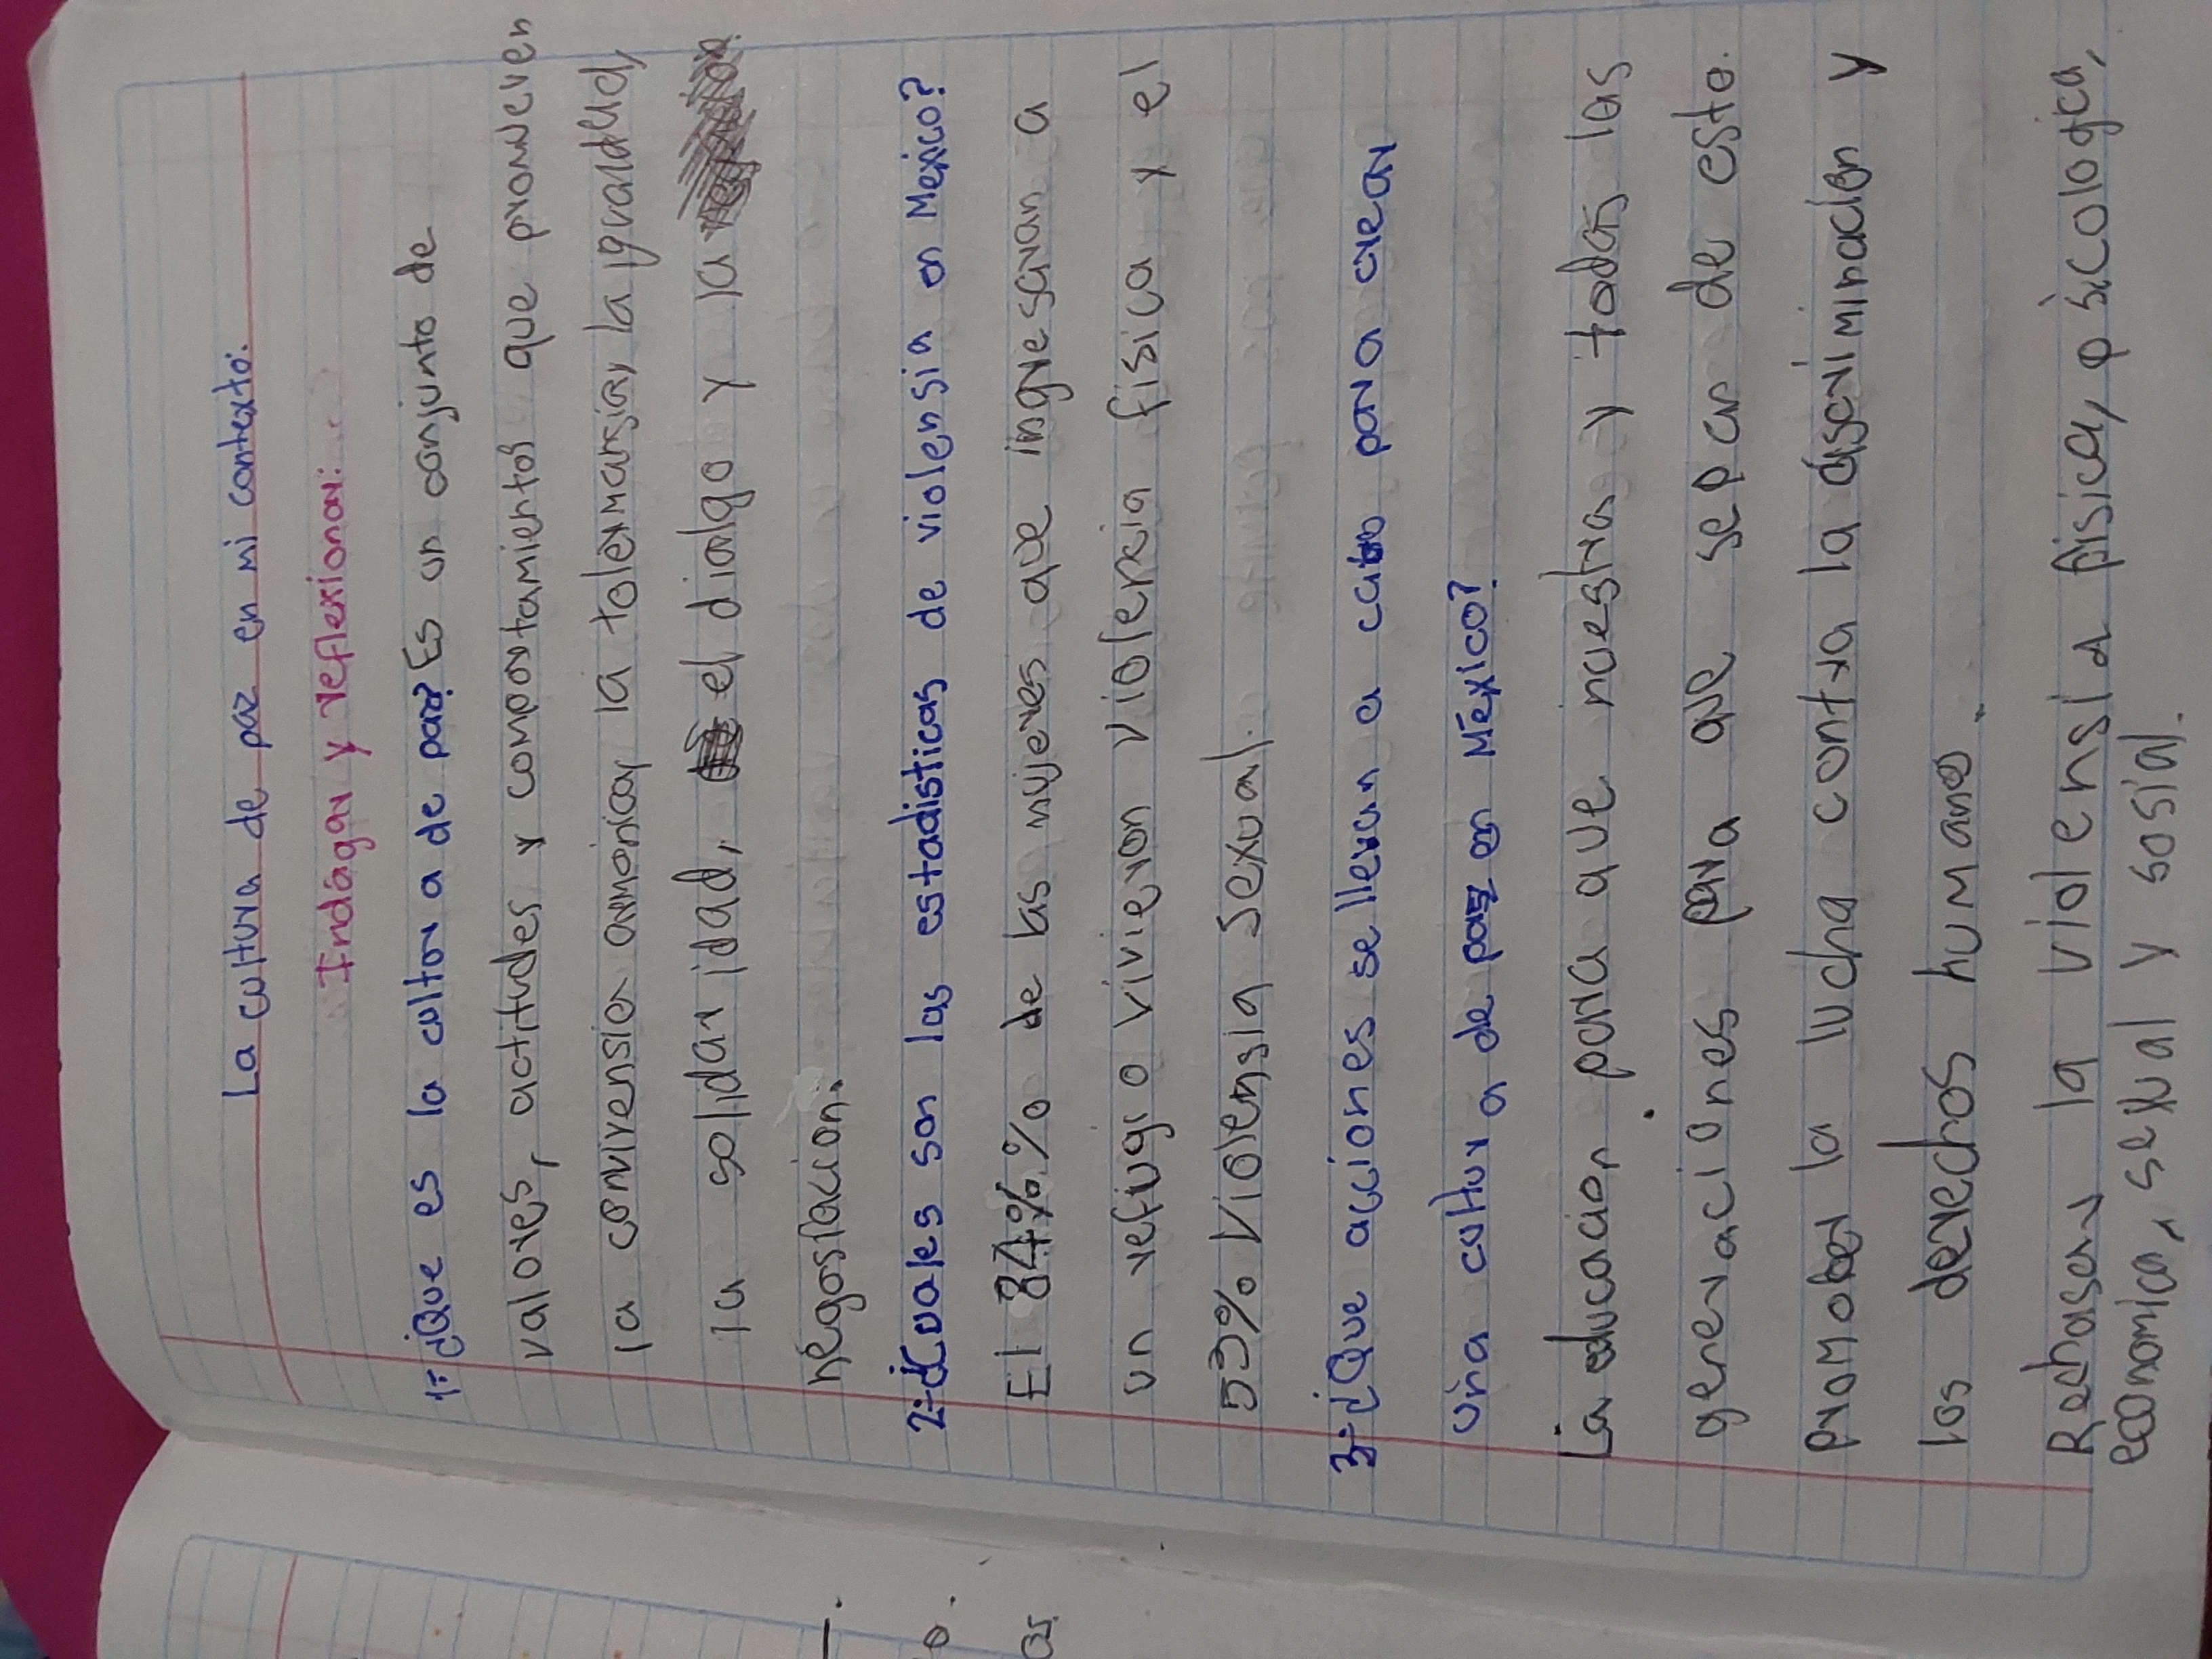 La cultura de paz en mi contexto.
Indagar y reflexionar:
1= ¿Que es la cultura de paz? Es un conjunto de
valores, actitudes y comportamientos que promeven
la convivensia armonica, la tolermansia, la igualdad,
la solidaridad, el dialgo y la
negosiacion.
2= ¿Cuales son las estadisticas de violensia en Mexico?
El 84%.% de las mujeres que ingresaran a
un refugio vivieron violencia fisica y el
53% violensia sexual.
3= ¿Que acciones se llevan a cabo para crear
una cultura de paz en México?
La educacion para que nuestras y todas las
generaciones para que sepan de esto.
promober la lucha contra la discriminacion y
los derechos humanos.
Rechasen la violensia fisica, psicologica,
economica, sexual y sosial.
o.
as